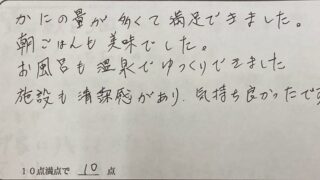 かにの量が多くて満足できました。
朝ごはんも美味でした。
お風呂も温泉でゆっくりできました
施設も清潔感があり、気持ち良かったです
10点満点で 10 点